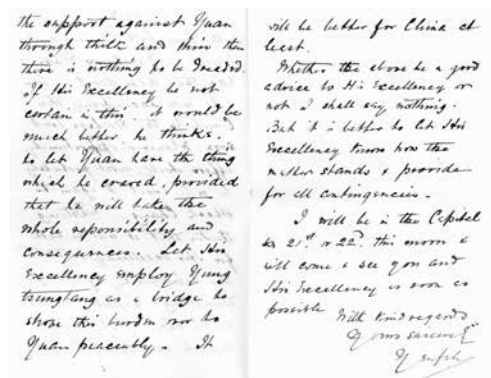 the support against Yuan
through thick and thin then
there is nothing to be dreaded.
If His Excellency be not
certain in this it would be
much better he thinks,
to let Yuan have the thing
which he craved, provided
that he will take the
whole reponsibility and
consequences. Let His
Excellency employ Yung
tsungtang as a bridge to
shove this burden over to
Yuan peaceably. It
will be better for China at
least.
Whether the above be a good
advice to His Excellency or
not I shall say nothing.
But it is better to let His
Excellency know how the
matter stands & provide
for all contingencies.
I will be in the Capital
21st or 22nd this moon &
will come & see you and
His Excellency as soon as
possible
With kind regards
Yours